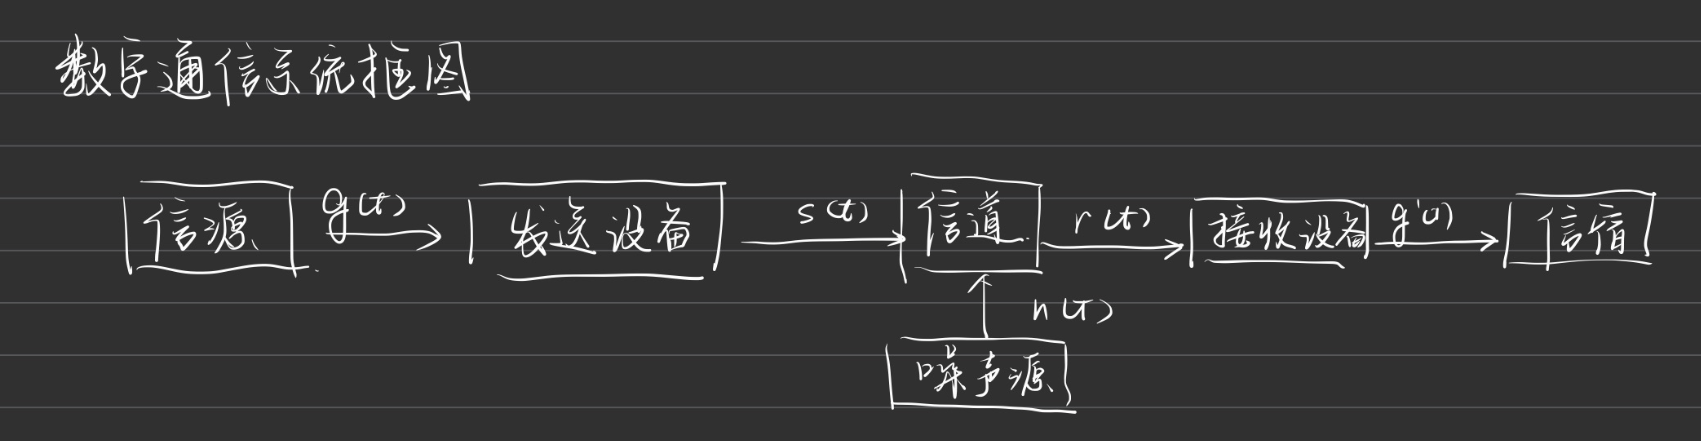 数字通信系统框图
信源 g(t) 发送设备 s(t) 信道 r(t) 接收设备 g'(t) 信宿
n(t)
噪声源